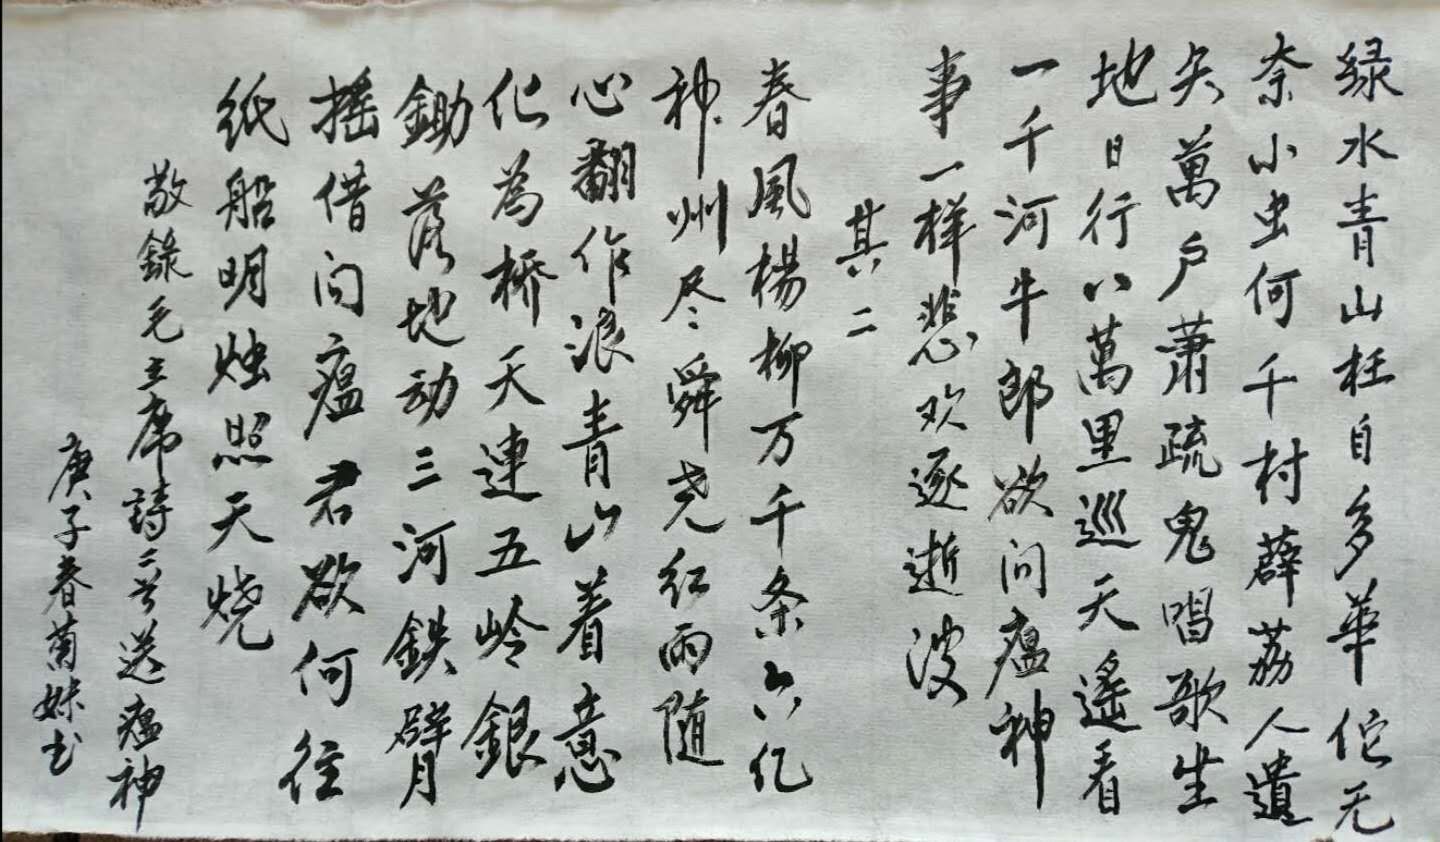 绿水青山枉自多華佗无
奈小虫何千村薜荔人遺
矢萬户蕭疏鬼唱歌坐
地日行八萬里巡天遥看
一千河牛郎欲问瘟神
事一样悲欢逐逝波
其二
春風楊柳万千条六亿
神州尽舜尧红雨随
心翻作浪青山着意
化為桥天連五岭銀
鋤落地动三河鉄臂
摇借问瘟君欲何往
纸船明烛照天烧
敬錄毛主席詩二首送瘟神
庚子春菊妹书